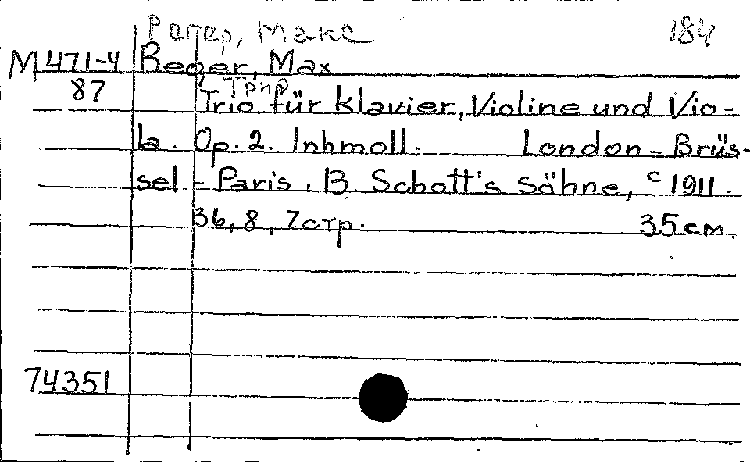 Рагер, Макс 184
M471-4 Beger, Max
87 Трио
Trio für Klavier, Violine und Vio-
la. Op. 2. Inhmoll. London - Brüs-
sel - Paris, B Schott's Sähne, c 1911.
36, 8, 7стр. 35см.
74351